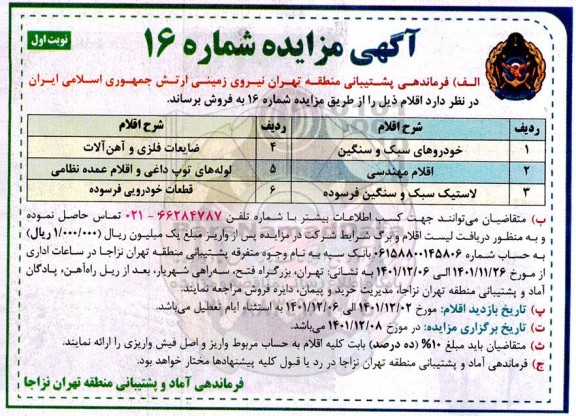 آگهی مزایده شماره ۱۶
نوبت اول
الف) فرماندهی پشتیبانی منطقه تهران نیروی زمینی ارتش جمهوری اسلامی ایران
در نظر دارد اقلام ذیل را از طریق مزایده شماره ۱۶ به فروش برساند.
ردیف شرح اقلام ردیف شرح اقلام
۱ خودروهای سبک و سنگین ۴ ضایعات فلزی و آهن‌آلات
۲ اقلام مهندسی ۵ لوله‌های توپ داغی و اقلام عمده نظامی
۳ لاستیک سبک و سنگین فرسوده ۶ قطعات خودرویی فرسوده
ب) متقاضیان می‌توانند جهت کسب اطلاعات بیشتر با شماره تلفن ۶۶۲۸۴۷۸۷ - ۰۲۱ تماس حاصل نموده
و به منظور دریافت لیست اقلام و برگ شرایط شرکت در مزایده پس از واریز مبلغ یک میلیون ریال (۱/۰۰۰/۰۰۰ ریال)
به حساب شماره ۰۶۱۵۸۸۰۰۱۴۵۸۰۶ بانک سپه به نام وجوه متفرقه پشتیبانی منطقه تهران نزاجا در ساعات اداری
از مورخ ۱۴۰۱/۱۱/۲۶ الی ۱۴۰۱/۱۲/۰۶ به نشانی: تهران، بزرگراه فتح، سه‌راهی شهریار، بعد از ریل راه‌آهن، پادگان
آماد و پشتیبانی منطقه تهران نزاجا، مدیریت خرید و پیمان، دایره فروش مراجعه نمایند.
پ) تاریخ بازدید اقلام: از مورخ ۱۴۰۱/۱۲/۰۲ الی ۱۴۰۱/۱۲/۰۶ به استثناء ایام تعطیل می‌باشد.
ت) تاریخ برگزاری مزایده: در مورخ ۱۴۰۱/۱۲/۰۸ می‌باشد.
ث) متقاضیان باید مبلغ ۱۰% (ده درصد) بابت کلیه اقلام به حساب مربوط واریز و اصل فیش واریزی را ارائه نمایند.
ج) فرماندهی آماد و پشتیبانی منطقه تهران نزاجا در رد یا قبول کلیه پیشنهادها مختار خواهد بود.
فرماندهی آماد و پشتیبانی منطقه تهران نزاجا